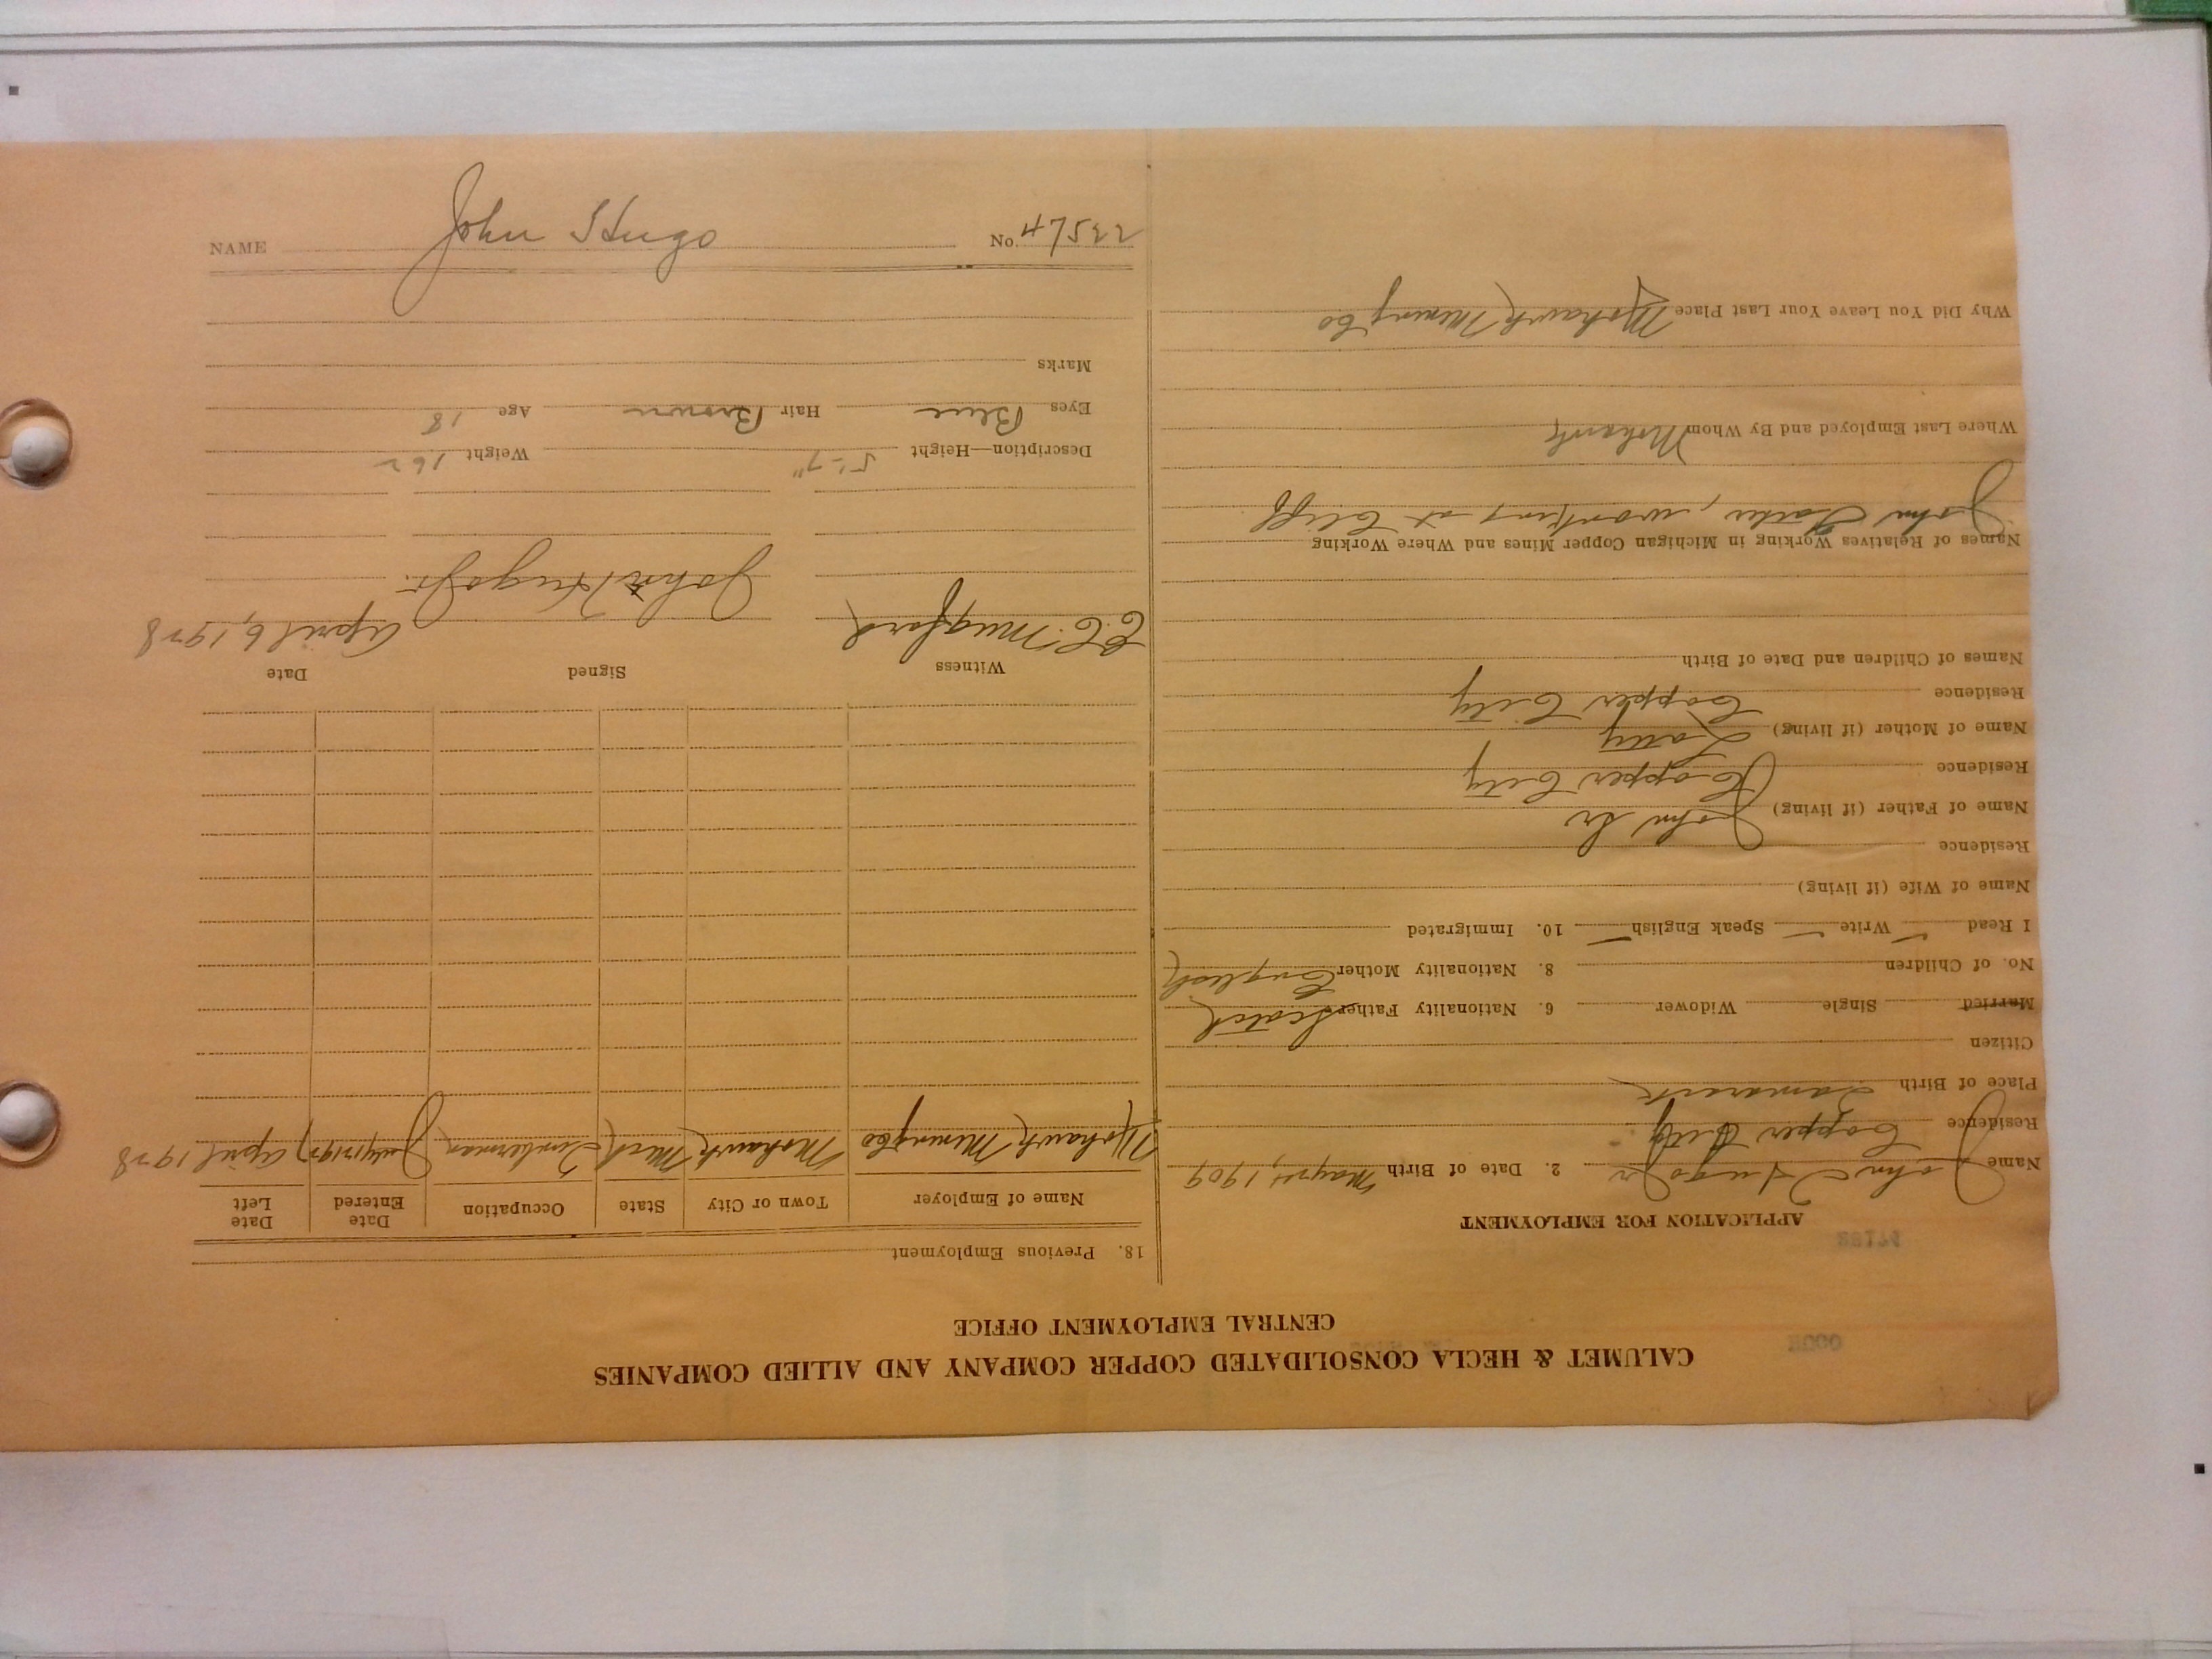 CALUMET & HECLA CONSOLIDATED COPPER COMPANY AND ALLIED COMPANIES
CENTRAL EMPLOYMENT OFFICE
APPLICATION FOR EMPLOYMENT
Name John Hugo Jr 2. Date of Birth May 1909
Residence Copper City
Place of Birth Tamarack
Citizen
Married Single Widower 6. Nationality Father Scotch
No. of Children 8. Nationality Mother English
I Read ✓ Write ✓ Speak English ✓ 10. Immigrated
Name of Wife (if living)
Residence
Name of Father (if living) John Sr
Residence Copper City
Name of Mother (if living)
Residence Copper City
Names of Children and Date of Birth
Names of Relatives Working in Michigan Copper Mines and Where Working
John Father, working at Cliff
Where Last Employed and By Whom Mohawk
Why Did You Leave Your Last Place Mohawk Mining Co
18. Previous Employment
Name of Employer Town or City State Occupation Date Entered Date Left
Mohawk Mining Co Mohawk Mich Timberman July April 1928
Witness Signed Date
C.C. Mugford John Hugo Jr. April 6, 1928
Description—Height 5'-7" Weight 162
Eyes Blue Hair Brown Age 18
Marks
NAME John Hugo No. 47522